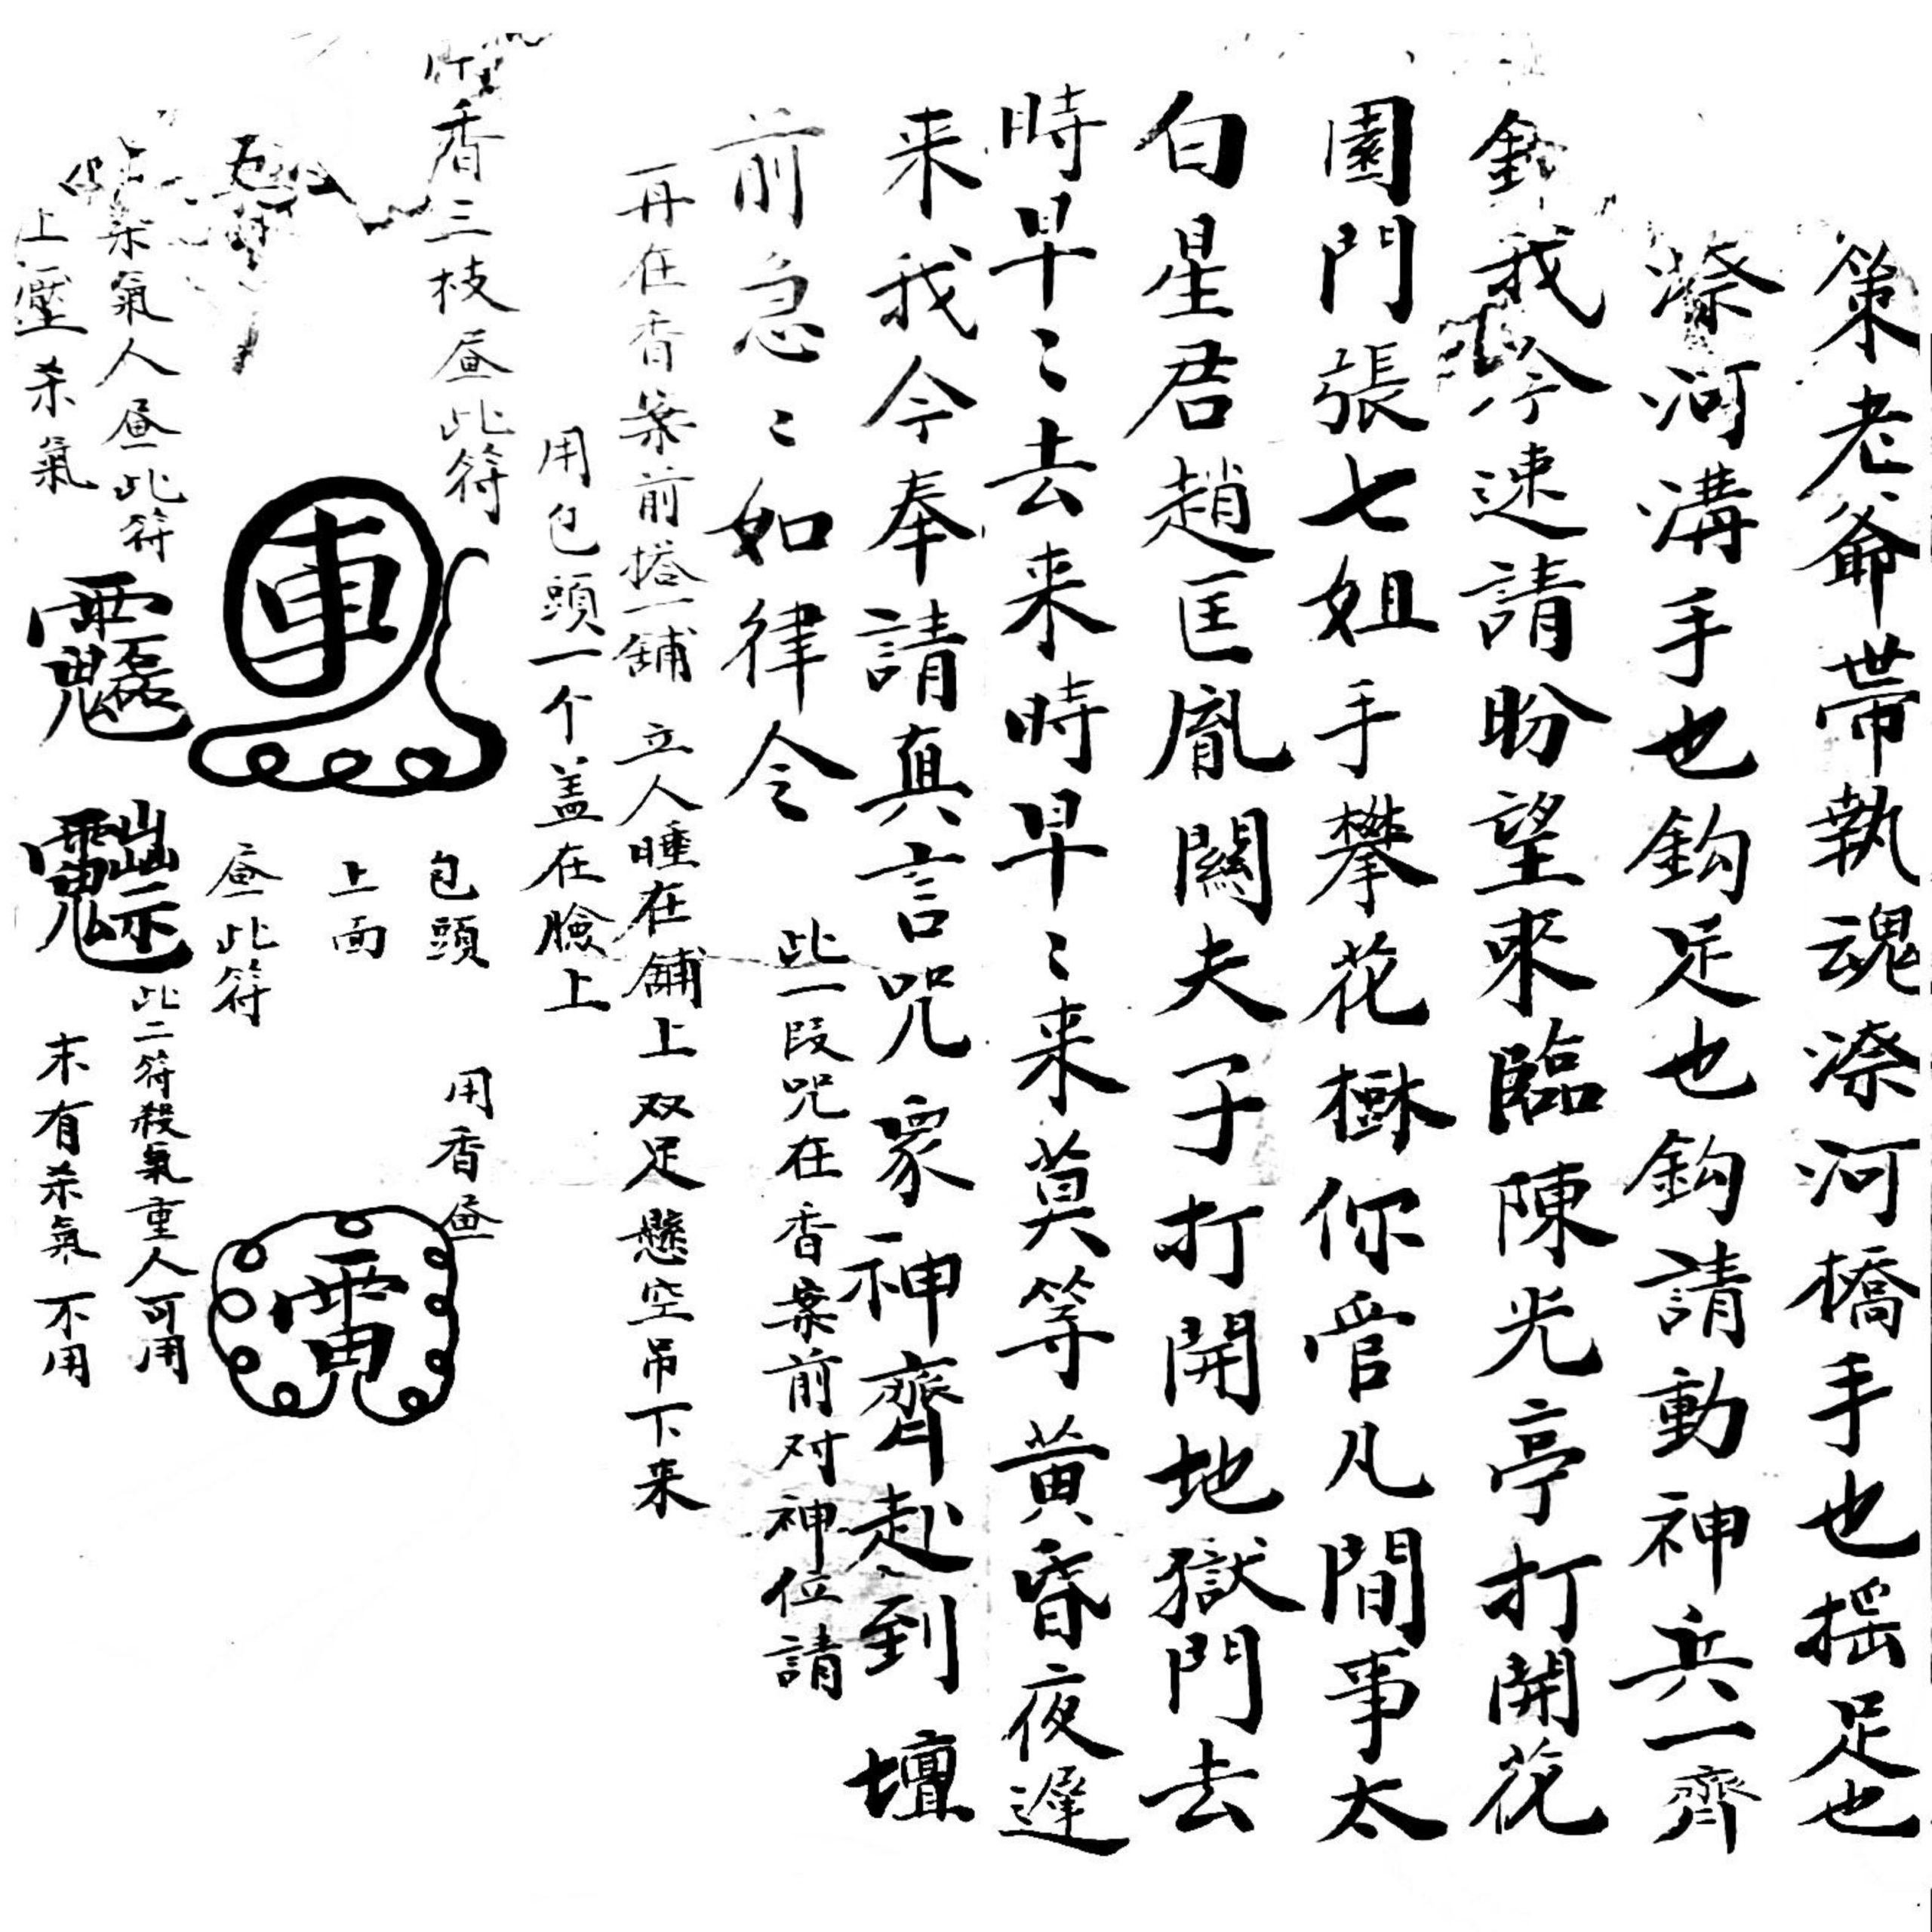 策老爺带執魂漈河橋手也摇足也
漈河溝手也鈎足也鈎請動神兵一齊
鈎我今速請盼望來臨陳光亭打開花
園門張七姐手攀花樹你管凡間事太
白星君趙匡胤關夫子打開地獄門去
時早〻去来時早〻来莫等黄昏夜遲
来我今奉請真言咒衆神齊赴到壇
前急〻如律令
此一段咒在香案前对神位請
再在香案前搭一鋪立人睡在鋪上双足懸空吊下来
用包頭一个盖在臉上
香三枝昼此符
車
包頭
上面
昼此符
用香昼
杀氣人昼此符
上壓杀氣
此二符殺氣重人可用
末有杀氣不用